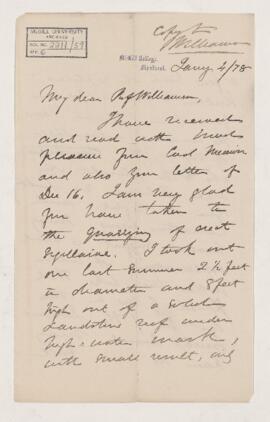 McGILL UNIVERSITY
ARCHIVES
ACC. NO. 2211/59
REF. 6
Copy to
Williamson
McGill College,
Montreal.
Jany 4/78
My dear Pr Williamson,
I have received
and read with much
pleasure your Coal Memoir
and also your letter of
Dec 16. I am very glad
you have taken to
the quarrying of erect
sigillariae. I took out
one last summer 2½ feet
in diameter and 8 feet
high out of a solid
sandstone reef under
high-water mark,
with small result, only